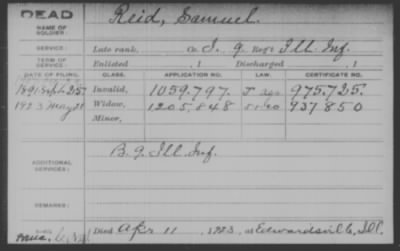 DEAD
NAME OF SOLDIER:
Reid, Samuel.
SERVICE:
Late rank, Co. I. 9 Reg't Ill. Inf.
TERM OF SERVICE:
Enlisted , 1 Discharged , 1
DATE OF FILING. CLASS. APPLICATION NO. LAW. CERTIFICATE NO.
1891 Sept 25 Invalid, 1059.797. 975.725.
1923 May 21 Widow, 1205.848 937850
Minor,
ADDITIONAL SERVICES:
B. 9 Ill. Inf.
REMARKS:
Died Apr 11, 1923, at Edwardsville, Ill.